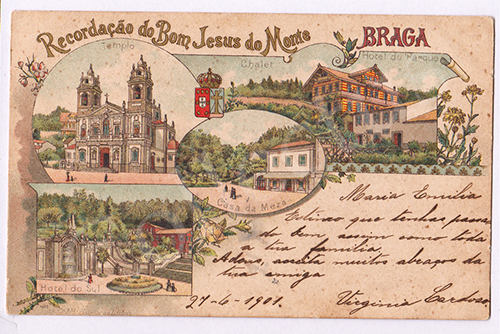 Recordação do Bom Jesus do Monte
BRAGA
Templo
Chalet
Hotel do Parque
Casa da Meza
Hotel do Sul
Maria Emilia
Estimo que tenhas passado
bem assim como toda
a tua familia
Adeus, aceita muitos abraços da
tua amiga
27-6-1901.
Virginia Cardoso